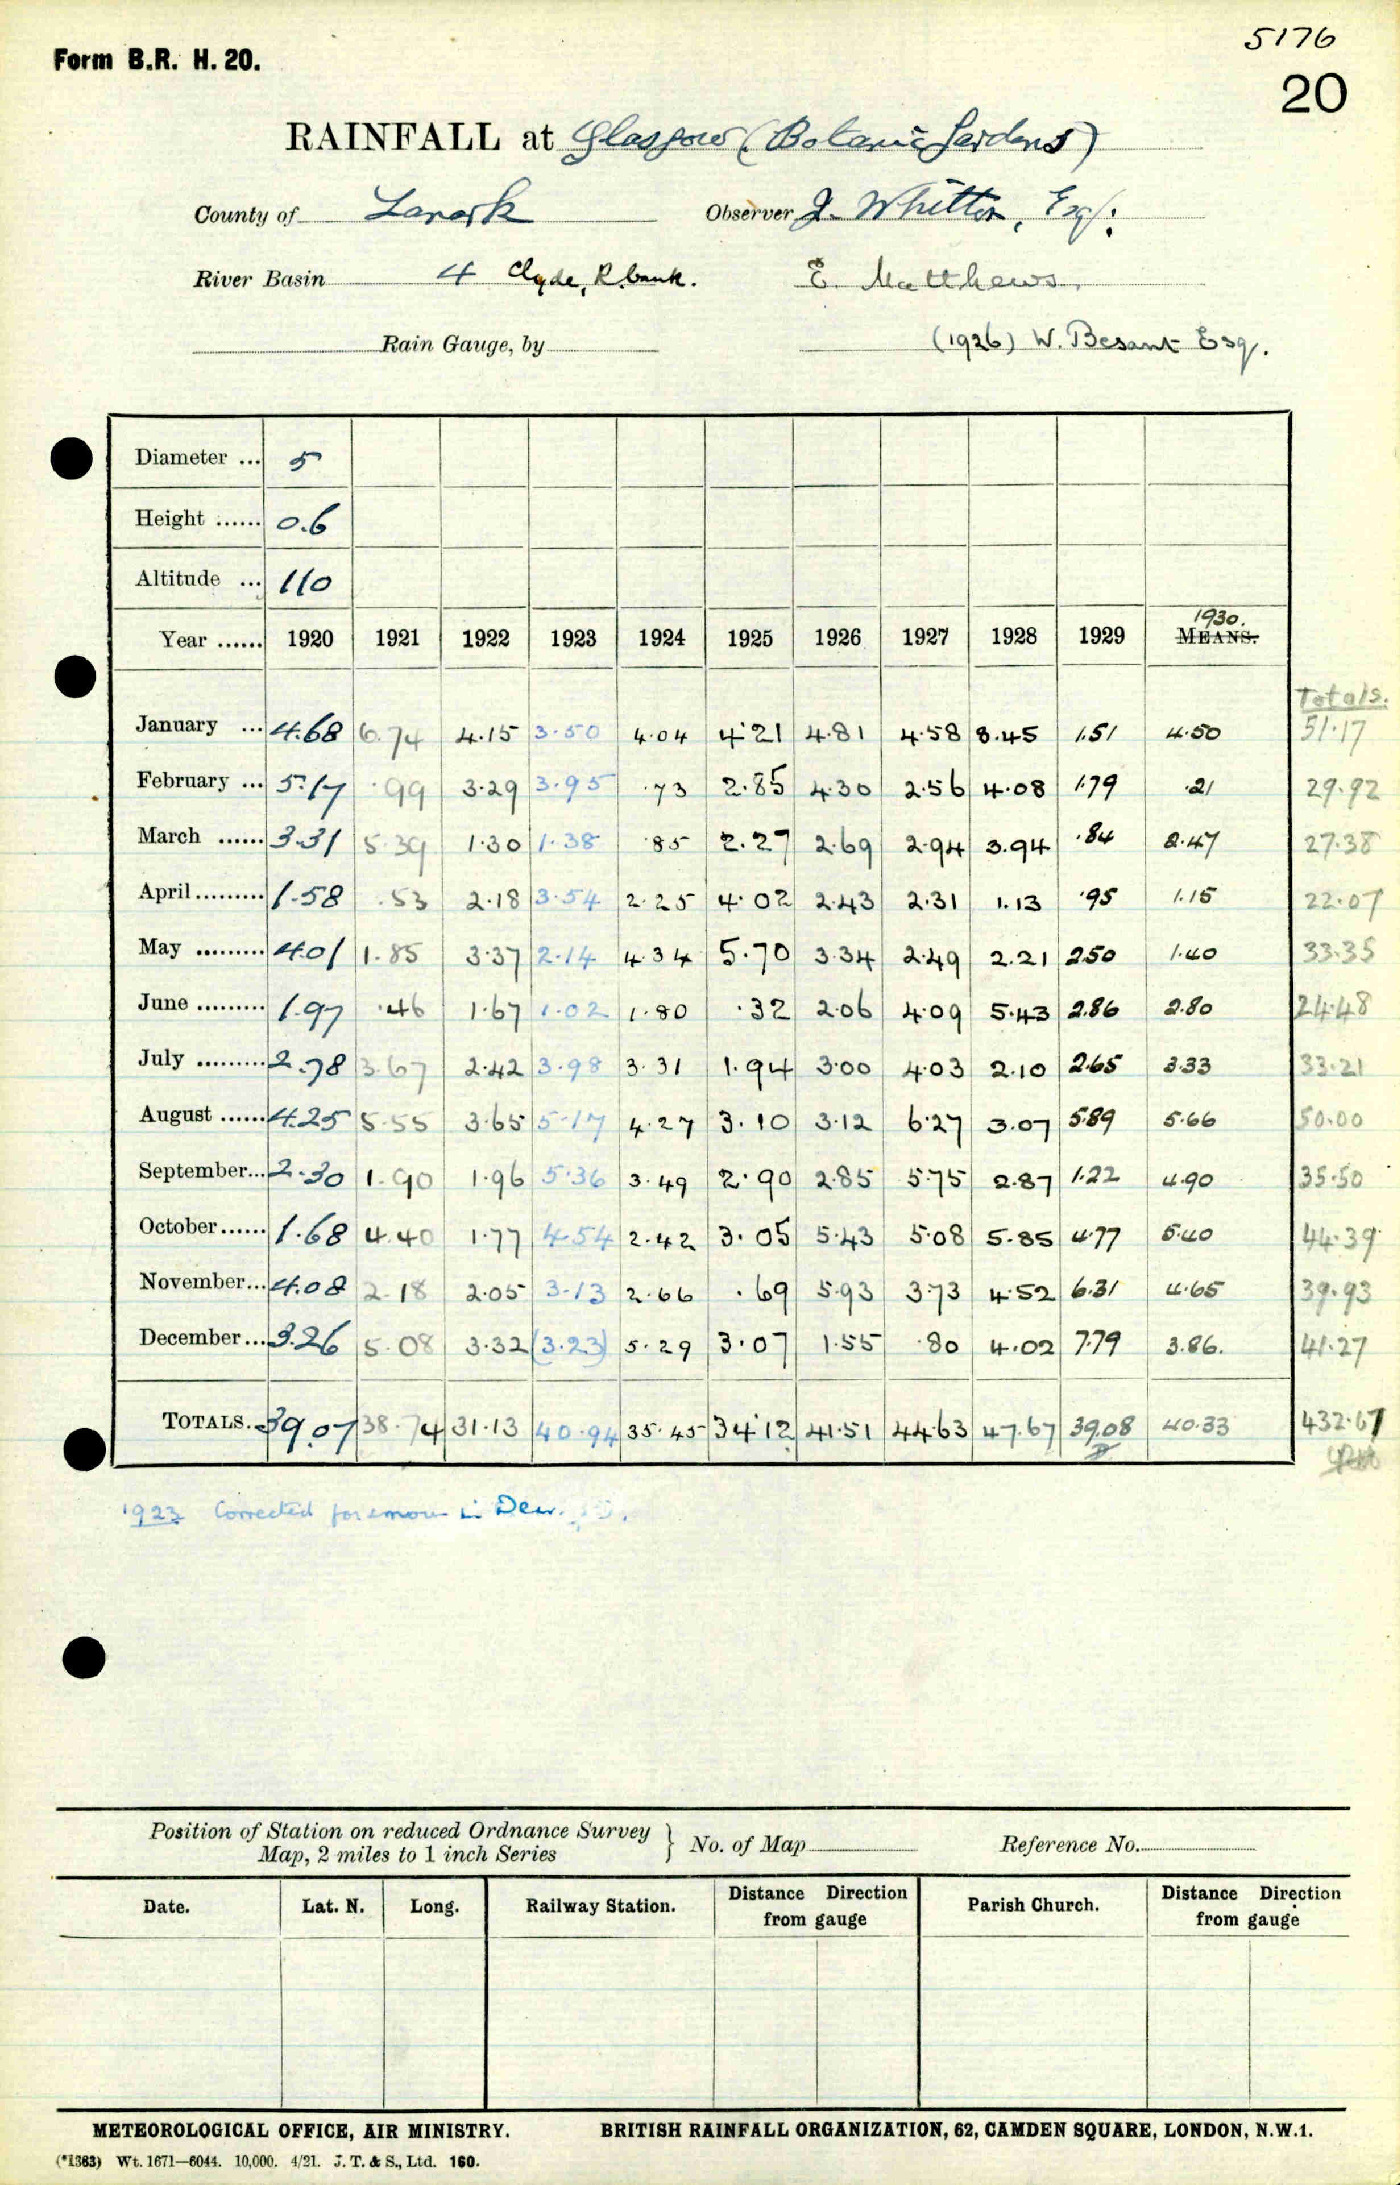 5176
Form B.R. H. 20.
20
RAINFALL at Glasgow (Botanic Gardens)
County of Lanark Observer J. Whitton, Esq:
River Basin 4 Clyde, R. bank. E. Matthews.
Rain Gauge, by (1926) W. Besant Esq.
Diameter ... 5
Height ...... 0.6
Altitude ... 110
1930.
Year ...... 1920 1921 1922 1923 1924 1925 1926 1927 1928 1929 MEANS.
Totals.
January ... 4.68 6.74 4.15 3.50 4.04 4.21 4.81 4.58 8.45 1.51 4.50 51.17
February ... 5.17 .99 3.29 3.95 .73 2.85 4.30 2.56 4.08 1.79 .21 29.92
March ...... 3.31 5.39 1.30 1.38 .85 2.27 2.69 2.94 3.94 .84 2.47 27.38
April ......... 1.58 .53 2.18 3.54 2.25 4.02 2.43 2.31 1.13 .95 1.15 22.07
May ......... 4.01 1.85 3.37 2.14 4.34 5.70 3.34 2.49 2.21 2.50 1.40 33.35
June ......... 1.97 .46 1.67 1.02 1.80 .32 2.06 4.09 5.43 2.86 2.80 24.48
July ......... 2.78 3.67 2.42 3.98 3.31 1.94 3.00 4.03 2.10 2.65 3.33 33.21
August ...... 4.25 5.55 3.65 5.17 4.27 3.10 3.12 6.27 3.07 5.89 5.66 50.00
September... 2.30 1.90 1.96 5.36 3.49 2.90 2.85 5.75 2.87 1.22 4.90 35.50
October...... 1.68 4.40 1.77 4.54 2.42 3.05 5.43 5.08 5.85 4.77 5.40 44.39
November... 4.08 2.18 2.05 3.13 2.66 .69 5.93 3.73 4.52 6.31 4.65 39.93
December... 3.26 5.08 3.32 (3.23) 5.29 3.07 1.55 .80 4.02 7.79 3.86. 41.27
TOTALS. 39.07 38.74 31.13 40.94 35.45 34.12 41.51 44.63 47.67 39.08 40.33 432.67
1923 Corrected for snow in Decr.
Position of Station on reduced Ordnance Survey
Map, 2 miles to 1 inch Series } No. of Map Reference No.
Date. Lat. N. Long. Railway Station. Distance from gauge Direction Parish Church. Distance from gauge Direction
METEOROLOGICAL OFFICE, AIR MINISTRY. BRITISH RAINFALL ORGANIZATION, 62, CAMDEN SQUARE, LONDON, N.W.1.
(*1383) Wt. 1671—6044. 10,000. 4/21. J. T. & S., Ltd. 160.